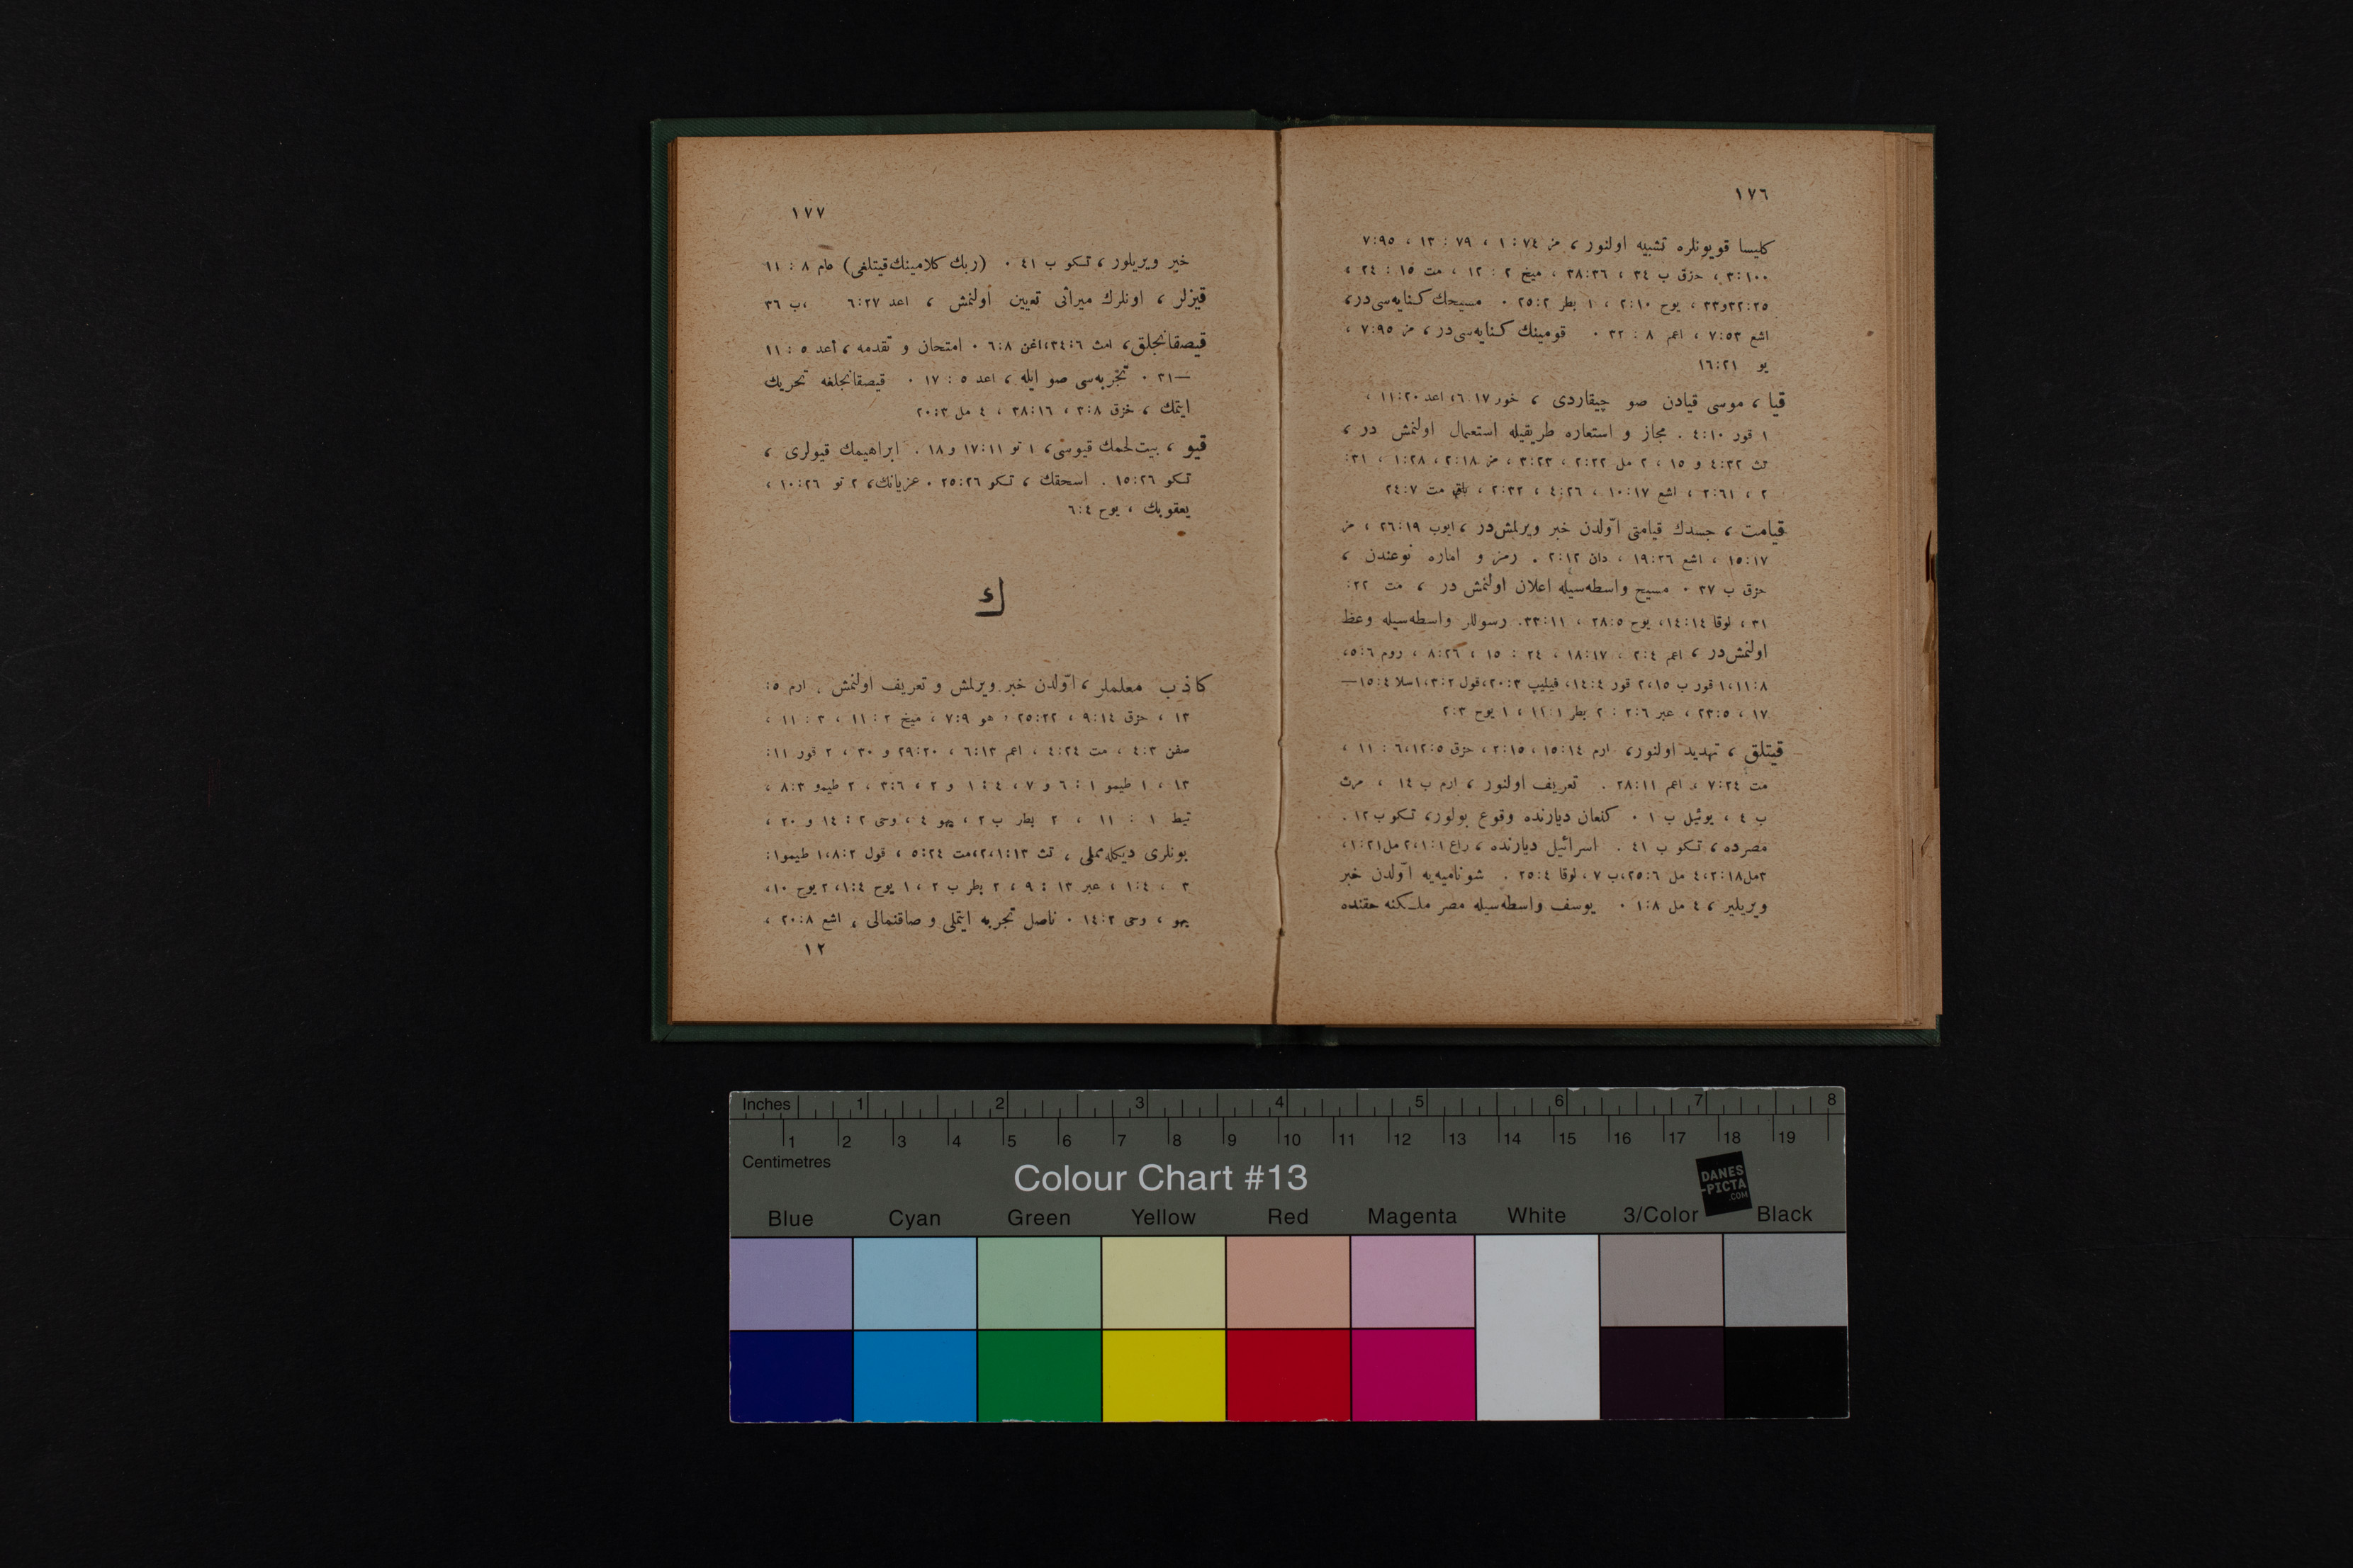 ١٧٦
كليسا قويونلره تشبيه اولنور، مز ٧٤ : ١ ، ٧٩ : ١٣ ، ٩٥:٧
١٠٠:٣ ، حزق ب ٣٤ ، ٣٦:٣٨ ، ميخ ٢ : ١٢ ، مت ١٥ : ٢٤ ،
٢٥:٣٢و٣٣ ، يوح ١٠:٢ ، ١ بطر ٢:٢٥ . مسيحك كنايه‌سى در،
اشع ٥٣:٧ ، اعم ٨ : ٣٢ . قومينك كنايه‌سى در، مز ٩٥:٧ ،
يو ٢١:١٦
قيا ، موسى قيادن صو چيقاردى ، خور ١٧ ٦، اعد ٢٠:١١ ،
١ قور ١٠:٤ . مجاز و استعاره طريقيله استعمال اولنمش در ،
تث ٣٢:٤ و ١٥ ، ٢ مل ٢٢:٢ ، ٢٣:٣ ، مز ١٨:٢ ، ٢٨:١ ، ٣١:
٢ ، ٦١:٢ ، اشع ١٧:١٠ ، ٢٦:٤ ، ٣٢:٢ ، باق مت ٧:٢٤
قيامت ، جسدك قيامتى اوّلدن خبر ويرلمش‌در ، ايوب ١٩:٢٦ ، مز
١٧:١٥ ، اشع ٢٦:١٩ ، دان ١٢:٢ . رمز و اماره نوعندن ،
حزق ب ٣٧ . مسيح واسطه‌سيله اعلان اولنمش در ، مت ٢٢:
٣١ ، لوقا ١٤:١٤، يوح ٥:٢٨ ، ١١:٢٣. رسوللر واسطه‌سيله وعظ
اولنمش‌در ، اعم ٤:٢ ، ١٧:١٨ ، ٢٤ : ١٥ ، ٢٦:٨ ، روم ٦:٥،
٨:١١،١ قور ب ١٥،٢ قور ٤:١٤، فيليپ ٣:٢٠،قول ٣:٢،١سلا ٤:١٥—
١٧ ، ٥:٢٣ ، عبر ٦:٢ : ٢ بطر ١:١٢ ، ١ يوح ٣:٢
قيتلق ، تهديد اولنور، ارم ١٤:١٥ ، ١٥:٢ ، حزق ٥:١٢،٦ : ١١ ،
مت ٢٤:٧ ، اعم ١١:٢٨ . تعريف اولنور ، ارم ب ١٤ ، مرث
ب ٤ ، يوئيل ب ١ . كنعان ديارنده وقوع بولور، تكو ب ١٢ .
مصرده ، تكو ب ٤١ . اسرائيل ديارنده ، راع ١:١،٢ مل ٢١:١،
٣مل١٨:٢،٤ مل ٦:٢٥،ب ٧ ، لوقا ٤:٢٥ . شوناميه‌يه اوّلدن خبر
ويريلير ، ٤ مل ٨:١ . يوسف واسطه‌سيله مصر ملكنه حقنده
١٧٧
خبر ويريلور ، تكو ب ٤١ . (ربك كلامينك قيتلغى) عام ٨ : ١١
قيزلر ، اونلرك ميراثى تعيين اولنمش ، اعد ٢٧:٦ ،ب ٣٦
قيصقانجلق، امث ٦:٣٤،اغن ٨:٦ . امتحان و تقدمه ، اعد ٥ : ١١
—٣١ . تجربه‌سى صو ايله ، اعد ٥ : ١٧ . قيصقانجلغه تحريك
ايتمك ، حزق ٨:٣ ، ١٦:٣٨ ، ٤ مل ٣:٢٠
قيو ، بيت لحمك قيوسى، ١ تو ١١:١٧ و ١٨ . ابراهيمك قيولرى ،
تكو ٢٦:١٥ . اسحقك ، تكو ٢٦:٢٥ . عزيانك، ٢ تو ٢٦:١٠ ،
يعقوبك ، يوح ٤:٦
ك
كاذب معلملر ، اوّلدن خبر ويرلمش و تعريف اولنمش ، ارم ٥:
١٣ ، حزق ١٤:٩ ، ٢٢:٢٥ ؛ هو ٩:٧ ، ميخ ٢ : ١١ ، ٣ : ١١ ،
صفن ٣:٤ ، مت ٢٤:٤ ، اعم ١٣:٦ ، ٢٠:٢٩ و ٣٠ ، ٢ قور ١١:
١٣ ، ١ طيمو ١ : ٦ و ٧ ، ٤ : ١ و ٢ ، ٦:٣ ، ٢ طيمو ٣:٨ ،
تيط ١ : ١١ ، ٢ بطر ب ٢ ، يهو ٤ ، وحى ٢ : ١٤ و ٢٠ ،
بونلرى ديكله‌ملى ، تث ١٣:١،٢،مت ٢٤:٥ ، قول ٢:٨،١ طيمو١:
٣ ، ٤:١ ، عبر ١٣ : ٩ ، ٢ بطر ب ٢ ، ١ يوح ٤:١، ٢ يوح ١٠،
يهو ، وحى ٢:١٤ . ناصل تجربه ايتملى و صاقنمالى ، اشع ٨:٢٠ ،
١٢
Inches 1 2 3 4 5 6 7 8
1 2 3 4 5 6 7 8 9 10 11 12 13 14 15 16 17 18 19
Centimetres
Colour Chart #13
DANES
-PICTA
.COM
Blue Cyan Green Yellow Red Magenta White 3/Color Black